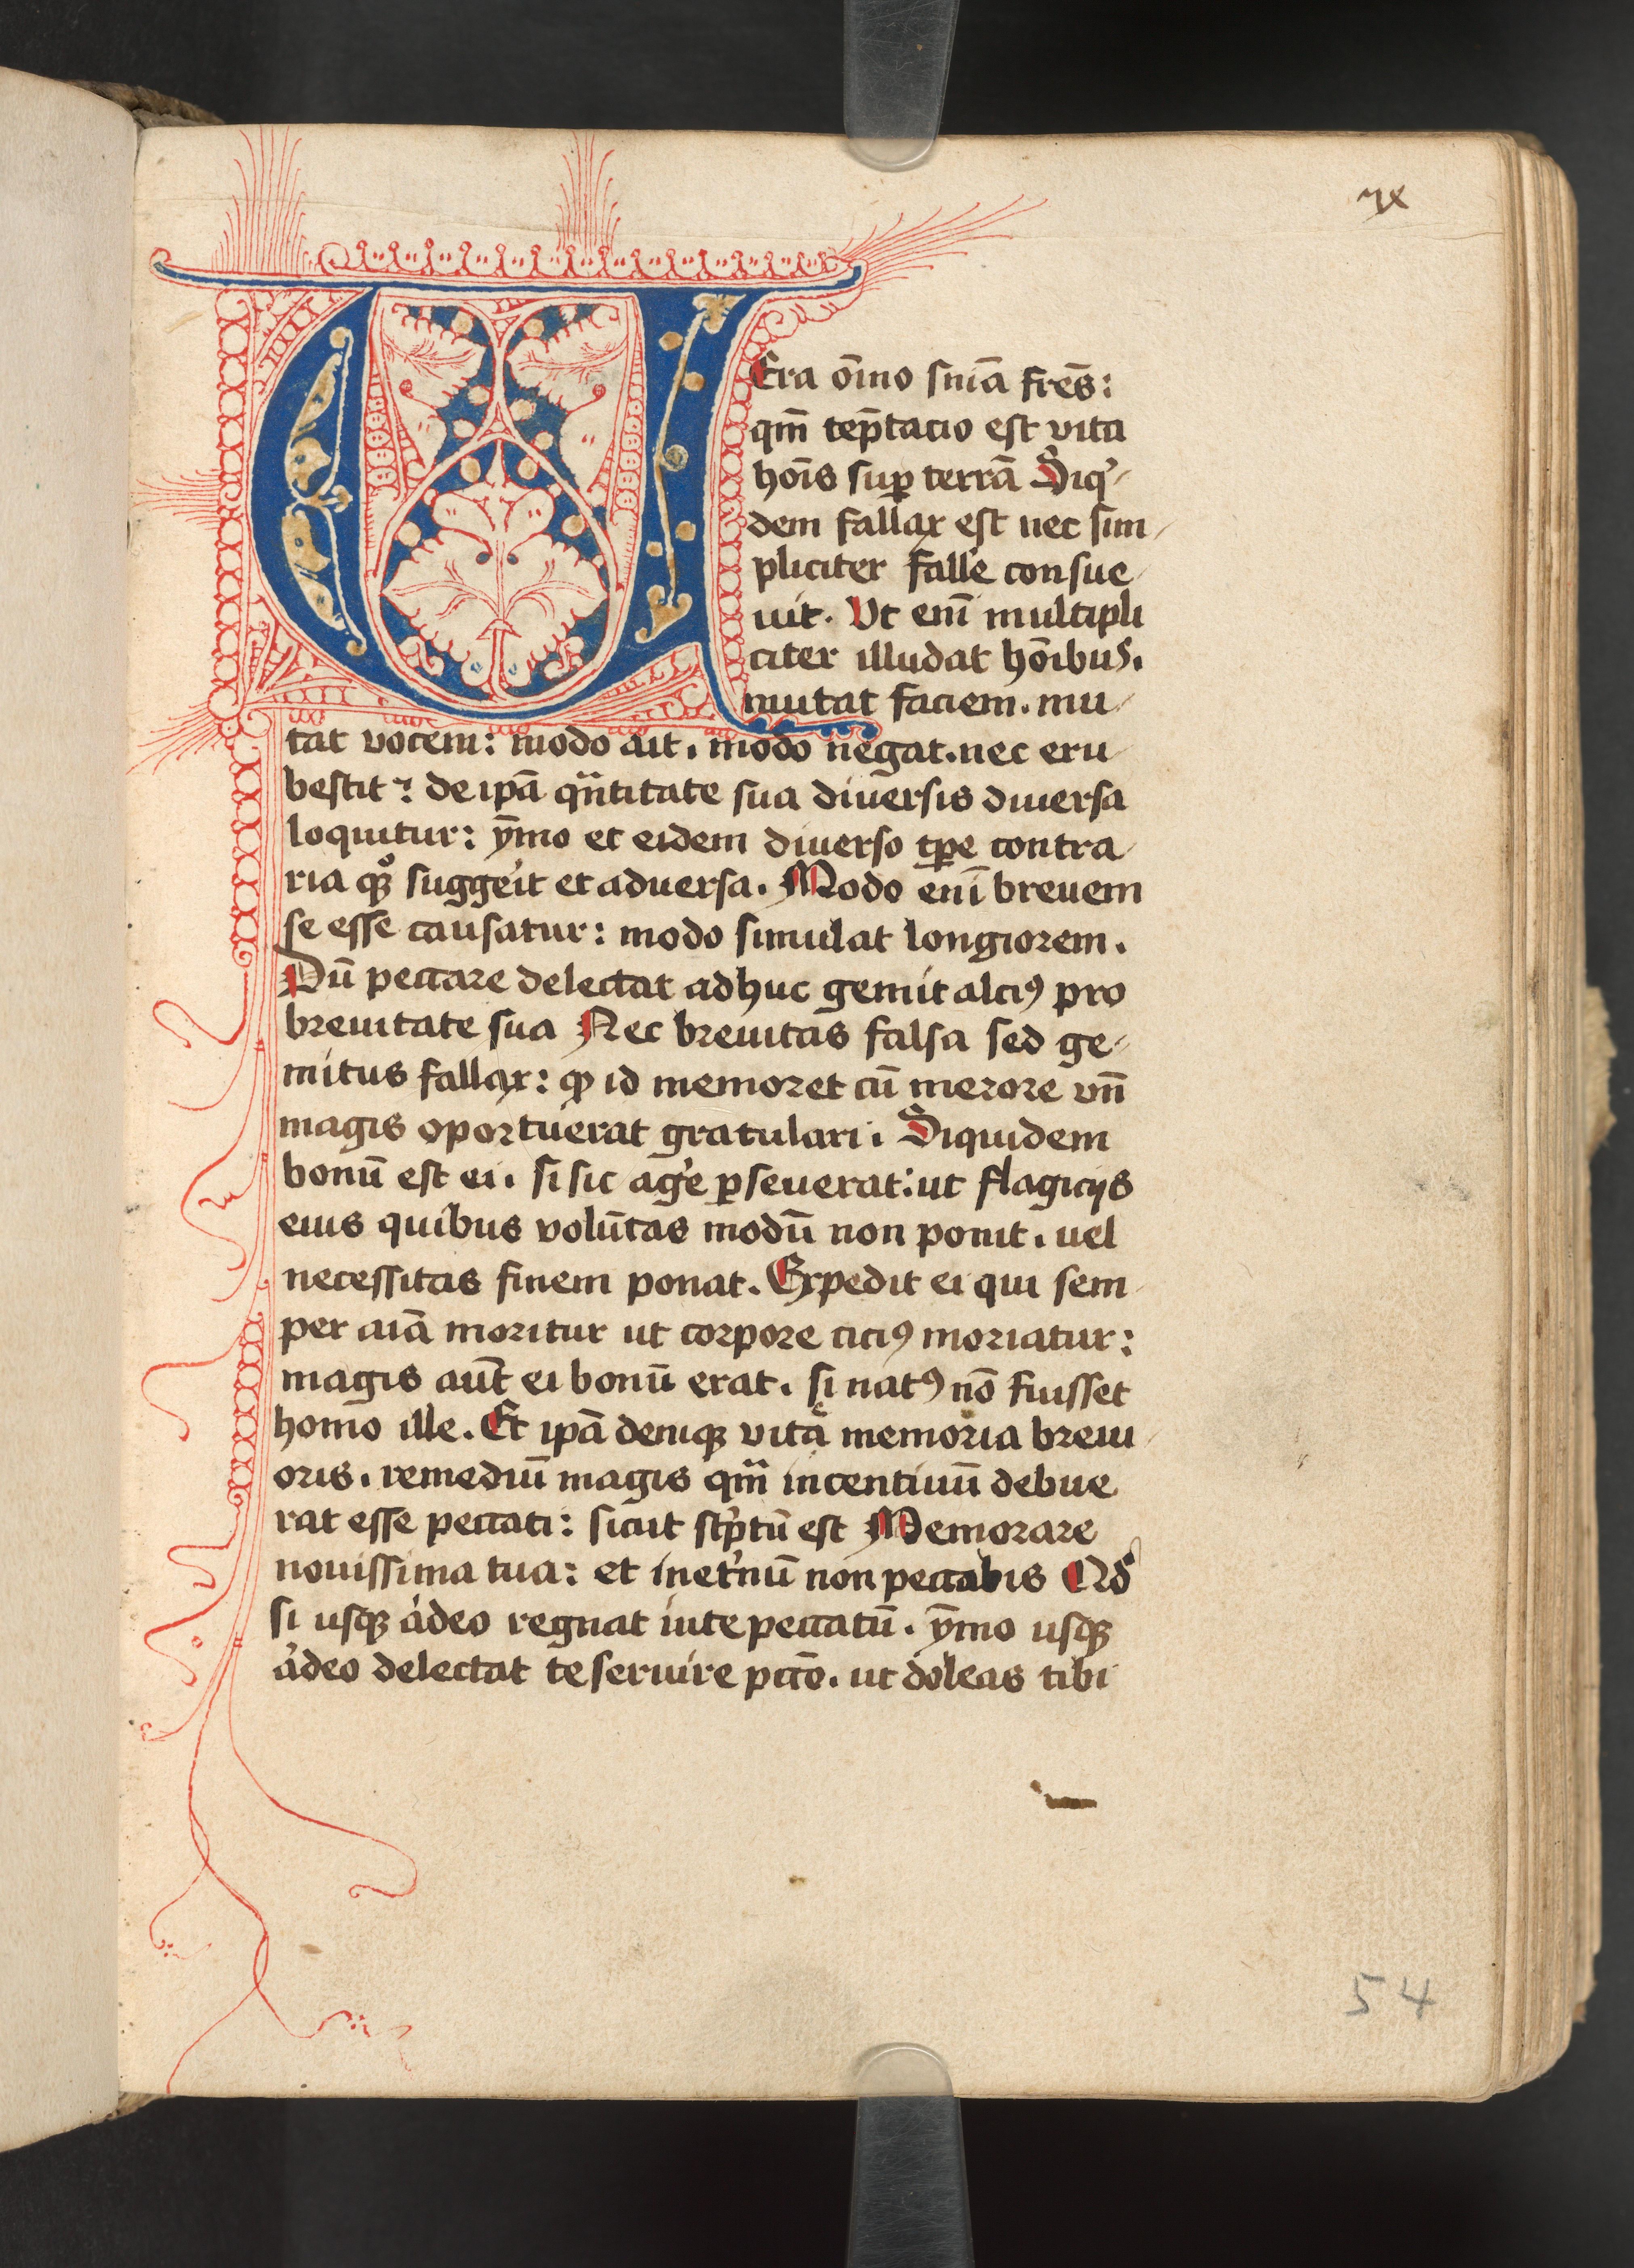 ıx
VEra om̄o sn̄iā frēs:
qm̄ tep̄tacio est vita
hoīs suꝑ terrā Siq'
dem fallax est nec sim
pliciter fallē consue
uit. Ut enī multipli
citer illudat hoībus.
mutat faciem. mu
tat vocem: modo ait. modo negat. nec eru
bescit: de ip̄a qn̄titate sua diuersis diuersa
loquitur: ȳmo et eidem diuerso tp̄e contra
ria qꝫ suggeīt et aduersa. Modo enī breuem
se esse causatur: modo simulat longiorem.
Dū peccare delectat adhuc gemit alciꝯ pro
breuitate sua Nec breuitas falsa sed ge
mitus fallax: ꝙ id memoret cū merore vn̄
magis oportuerat gratulari. Siquidem
bonū est ei. si sic agē ꝑseuerat: ut flagicijs
eius quibus volūtas modū non ponit. uel
necessitas finem ponat. Expedit ei qui sem
per aīā moritur ut corpore ciciꝯ moriatur:
magis aūt ei bonū erat. si natꝯ nō fuisset
homo ille. Et ip̄a deniqꝫ vitę memoria breui
oris. remediū magis qm̄ incentiuū debue
rat esse peccati: sicut scp̄tū est Memorare
nouissima tua: et inet'nū non peccabis Qd
si usqꝫ adeo regnat inte peccatū. ȳmo usqꝫ
adeo delectat te seruire pctō. ut doleas tibi
54